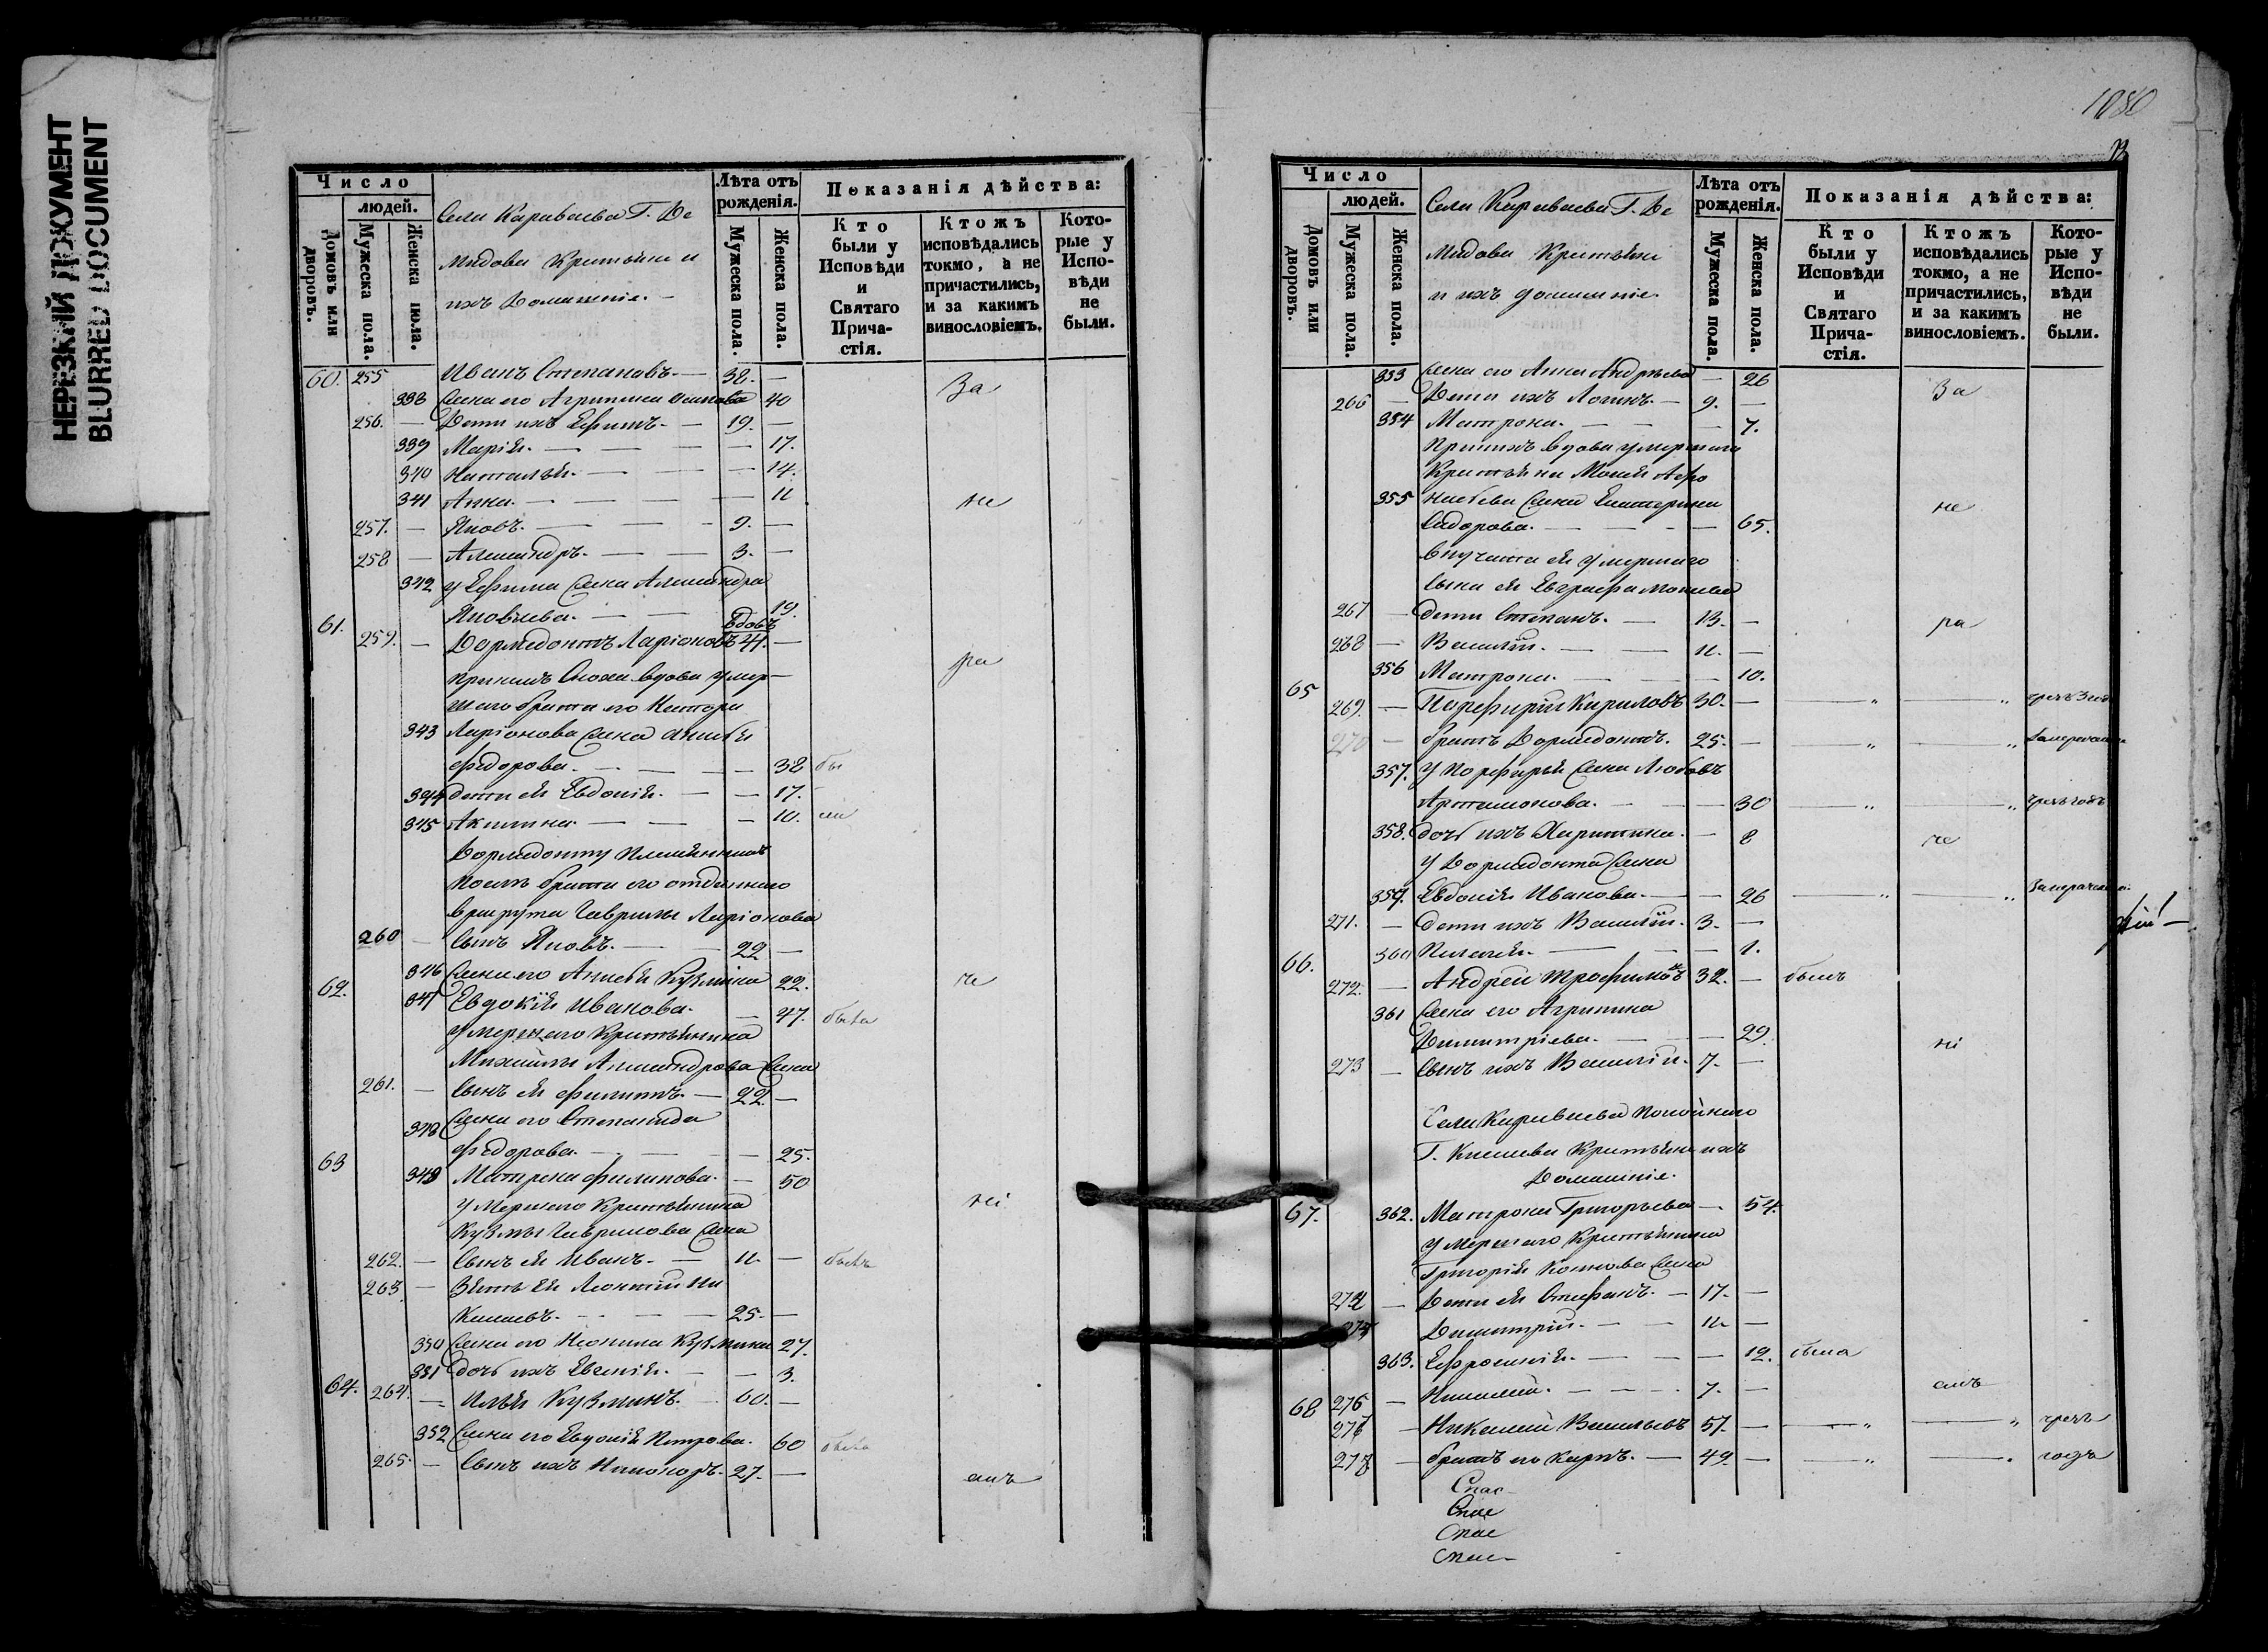 НЕРЕЗКИЙ ДОКУМЕНТ
BLURRED DOCUMENT
Число
людей.
Домовъ или дворовъ.
Мужеска пола.
Женска пола.
Села Караваева Г. Де
мидова Крестьяне и
ихъ домашніе. —
Лѣта отъ рожденія.
Мужеска пола.
Женска пола.
Показанія дѣйства:
Кто были у Исповѣди и Святаго Причастія.
Ктожъ исповѣдались токмо, а не причастились, и за какимъ винословіемъ.
Которые у Исповѣди не были.
60. 255 Иванъ Степановъ. — 38. — За
338 жена его Агрипина Осипова 40
256. — Дети ихъ Ефимъ. — 19. —
339 Марія. — — 17.
340 Наталья. — — 14.
341 Анна. — — 11 не
257. — Яковъ. — 9. —
258 — Александръ. — 3. —
342 у Ефима жена Александра
Яковлева. — 19.
61. 259. — Вдовъ Дормедонтъ Ларіоновъ 41. —
при немъ сноха вдова умер ра
шаго брата его Нестора
343 Ларіонова жена Анисья
Федорова. — 38 бы
344 дети ея Евдокія. — — 17.
345 Акилина. — — 10. ли
Дормедонту племянникъ
посли брата его отданнаго
в рекруты Гаврилы Ларіонова
260 — сынъ Яковъ. — 22 —
346 жена его Анисья Кузмина 22. че
62. 347 Евдокія Иванова. — 47. была
умершаго Крестьянина
Михайлы Александрова жена
261. — сынъ ея Филипъ. — 22 —
348 жена его Степанида
Федорова. — 25.
63 349 Матрена Филипова. — 50
умершаго Крестьянина ні
Кузмы Гаврилова жена
262. — сынъ ея Иванъ. — 11 — былъ
263. — Зять ея Леонтій Ни
килаевъ. — 25. —
350 жена его Неонила Кузмина 27.
351 дочь ихъ Евгенія. — — 3.
64. 264. — Илья Кузминъ. 60. —
352 жена его Евдокія Петрова. 60 была
265. — сынъ ихъ Никоноръ. 27. — емъ
1080
Число
людей.
Домовъ или дворовъ.
Мужеска пола.
Женска пола.
Села Караваева Г. Де
мидова Крестьяне
и ихъ домашніе.
Лѣта отъ рожденія.
Мужеска пола.
Женска пола.
Показанія дѣйства:
Кто были у Исповѣди и Святаго Причастія.
Ктожъ исповѣдались токмо, а не причастились, и за какимъ винословіемъ.
Которые у Исповѣди не были.
353 жена его Анна Андреева — 26 За
266 — Дети ихъ Логинъ. — 9. —
354 Матрона. — — 7.
при нихъ вдова умершаго
Крестьянина Мокея Афо
355 насьева жена Екатерина не
Сидорова. — 65.
внучата ея умершаго
сына ея Евграфа Мокеева
267 — дети Степанъ. — 13. — ра
268 — Василій. — 11. —
356 Матрона. — 10.
65 269. — Парефирій Кириловъ 30. — „ — „ чрезъ 3 год
270 — братъ Дормедонтъ. 25. — „ — „
357. у Порфирья жена Любовь
Артамонова. — 30 — „ — „ чрезъ годъ
358. дочь ихъ Харитина. — 8 че
у Дормидонта жена
359. Евдокія Иванова. — 26 — „ — „
271. — дети ихъ Василій. 3. —
66. 360 Пелагея. — — 1.
272. — Андрей Трофимовъ 32. — былъ
361 жена его Агрипина
Димитріева. — 29. ні
273 — сынъ ихъ Василій. 7. —
Села Караваева покойнаго
Г. Крестьяне ихъ
домашніе.
67. 362. Матрона Григорьева — 54.
умершаго Крестьянина
Григорія жена
274 — Дети ея Стефанъ. — 17. —
275 Димитрій. — — 11 —
363. Ефросинія. — — 12. была
276 — Николай. — 7. — емъ
68 277 — Николай Васильевъ 57. — „ — „ чрезъ
278 — братъ его Карпъ. — 49. — „ — „ годъ
Спас
Спас
Спас
Спас